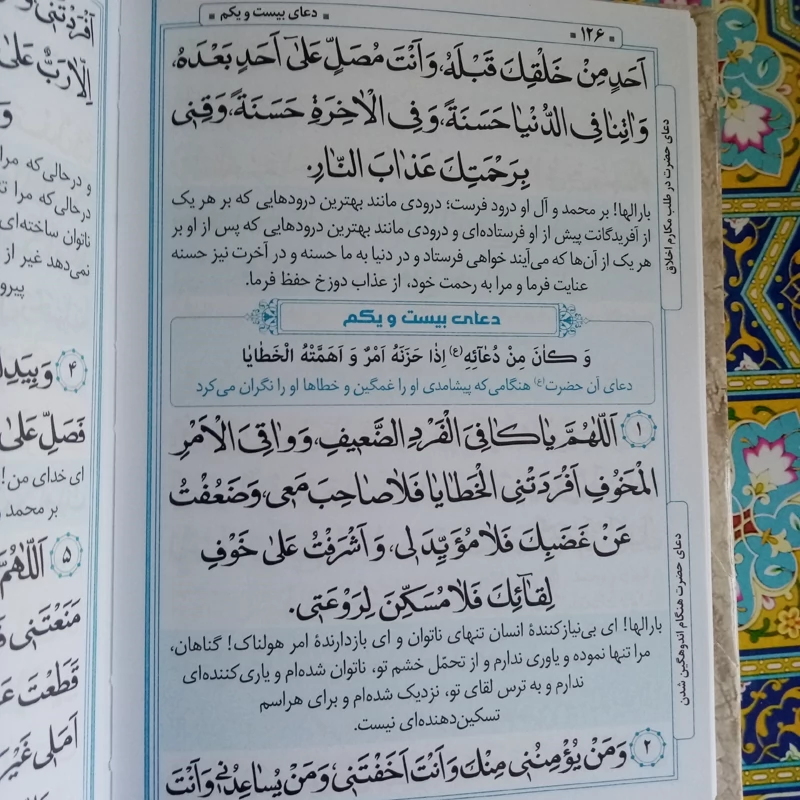 دعای بیست و یکم
۱۲۶
اَحَدٍ مِنْ خَلْقِكَ قَبْلَهُ، وَ اَنْتَ مُصَلٍّ عَلىٰٓ اَحَدٍ بَعْدَهُ،
وَ اٰتِنٰا فِى الدُّنْيٰا حَسَنَةً، وَ فِى الْاٰخِرَةِ حَسَنَةً، وَ قِنٖى
بِرَحْمَتِكَ عَذٰابَ النّٰارِ.
بارالها! بر محمد و آل او درود فرست؛ درودی مانند بهترین درودهایی که بر هر یک
از آفریدگانت پیش از او فرستاده‌ای و درودی مانند بهترین درودهایی که پس از او بر
هر یک از آن‌ها که می‌آیند خواهی فرستاد و در دنیا به ما حسنه و در آخرت نیز حسنه
عنایت فرما و مرا به رحمت خود، از عذاب دوزخ حفظ فرما.
دعای بیست و یکم
وَ كٰانَ مِنْ دُعٰآئِهِ (ع) اِذٰا حَزَنَهُ اَمْرٌ وَ اَهَمَّتْهُ الْخَطٰايٰا
دعای آن حضرت(ع) هنگامی‌که پیشامدی او را غمگین و خطاها او را نگران می‌کرد
۱ اَللّٰهُمَّ يٰا كٰافِىَ الْفَرْدِ الضَّعٖيفِ، وَ وٰاقِىَ الْاَمْرِ
الْمَخُوفِ اَفْرَدَتْنِى الْخَطٰايٰا فَلٰا صٰاحِبَ مَعٖى، وَ ضَعُفْتُ
عَنْ غَضَبِكَ فَلٰا مُؤَيِّدَ لٖى، وَ اَشْرَفْتُ عَلىٰ خَوْفِ
لِقٰآئِكَ فَلٰا مُسَكِّنَ لِرَوْعَتٖى.
بارالها! ای بی‌نیازکنندهٔ انسان تنهای ناتوان و ای بازدارندهٔ امر هولناک! گناهان،
مرا تنها نموده و یاوری ندارم و از تحمّل خشم تو، ناتوان شده‌ام و یاری‌کننده‌ای
ندارم و به ترس لقای تو، نزدیک شده‌ام و برای هراسم
تسکین‌دهنده‌ای نیست.
۲ وَ مَنْ يُؤْمِنُنٖى مِنْكَ وَ اَنْتَ اَخَفْتَنٖى، وَ مَنْ يُسٰاعِدُنٖى وَ اَنْتَ
دعای حضرت در طلب مکارم اخلاق
دعای حضرت هنگام اندوهگین شدن
اَفْرَدْتَنٖى
اِلّٰا رَبٌّ عَلىٰ
وَ
و درحالی که مرا
درحالی که مرا
ناتوان ساخته‌ای
نمی‌دهد غیر از
پیرو
۴ وَ بِيَدِ
فَصَلِّ عَلىٰ
ای خدای من!
بر محمد
۵ اَللّٰهُمَّ
مَنَعْتَنٖى
قَطَعْتَ
اَمَلٖى غَيْرَ